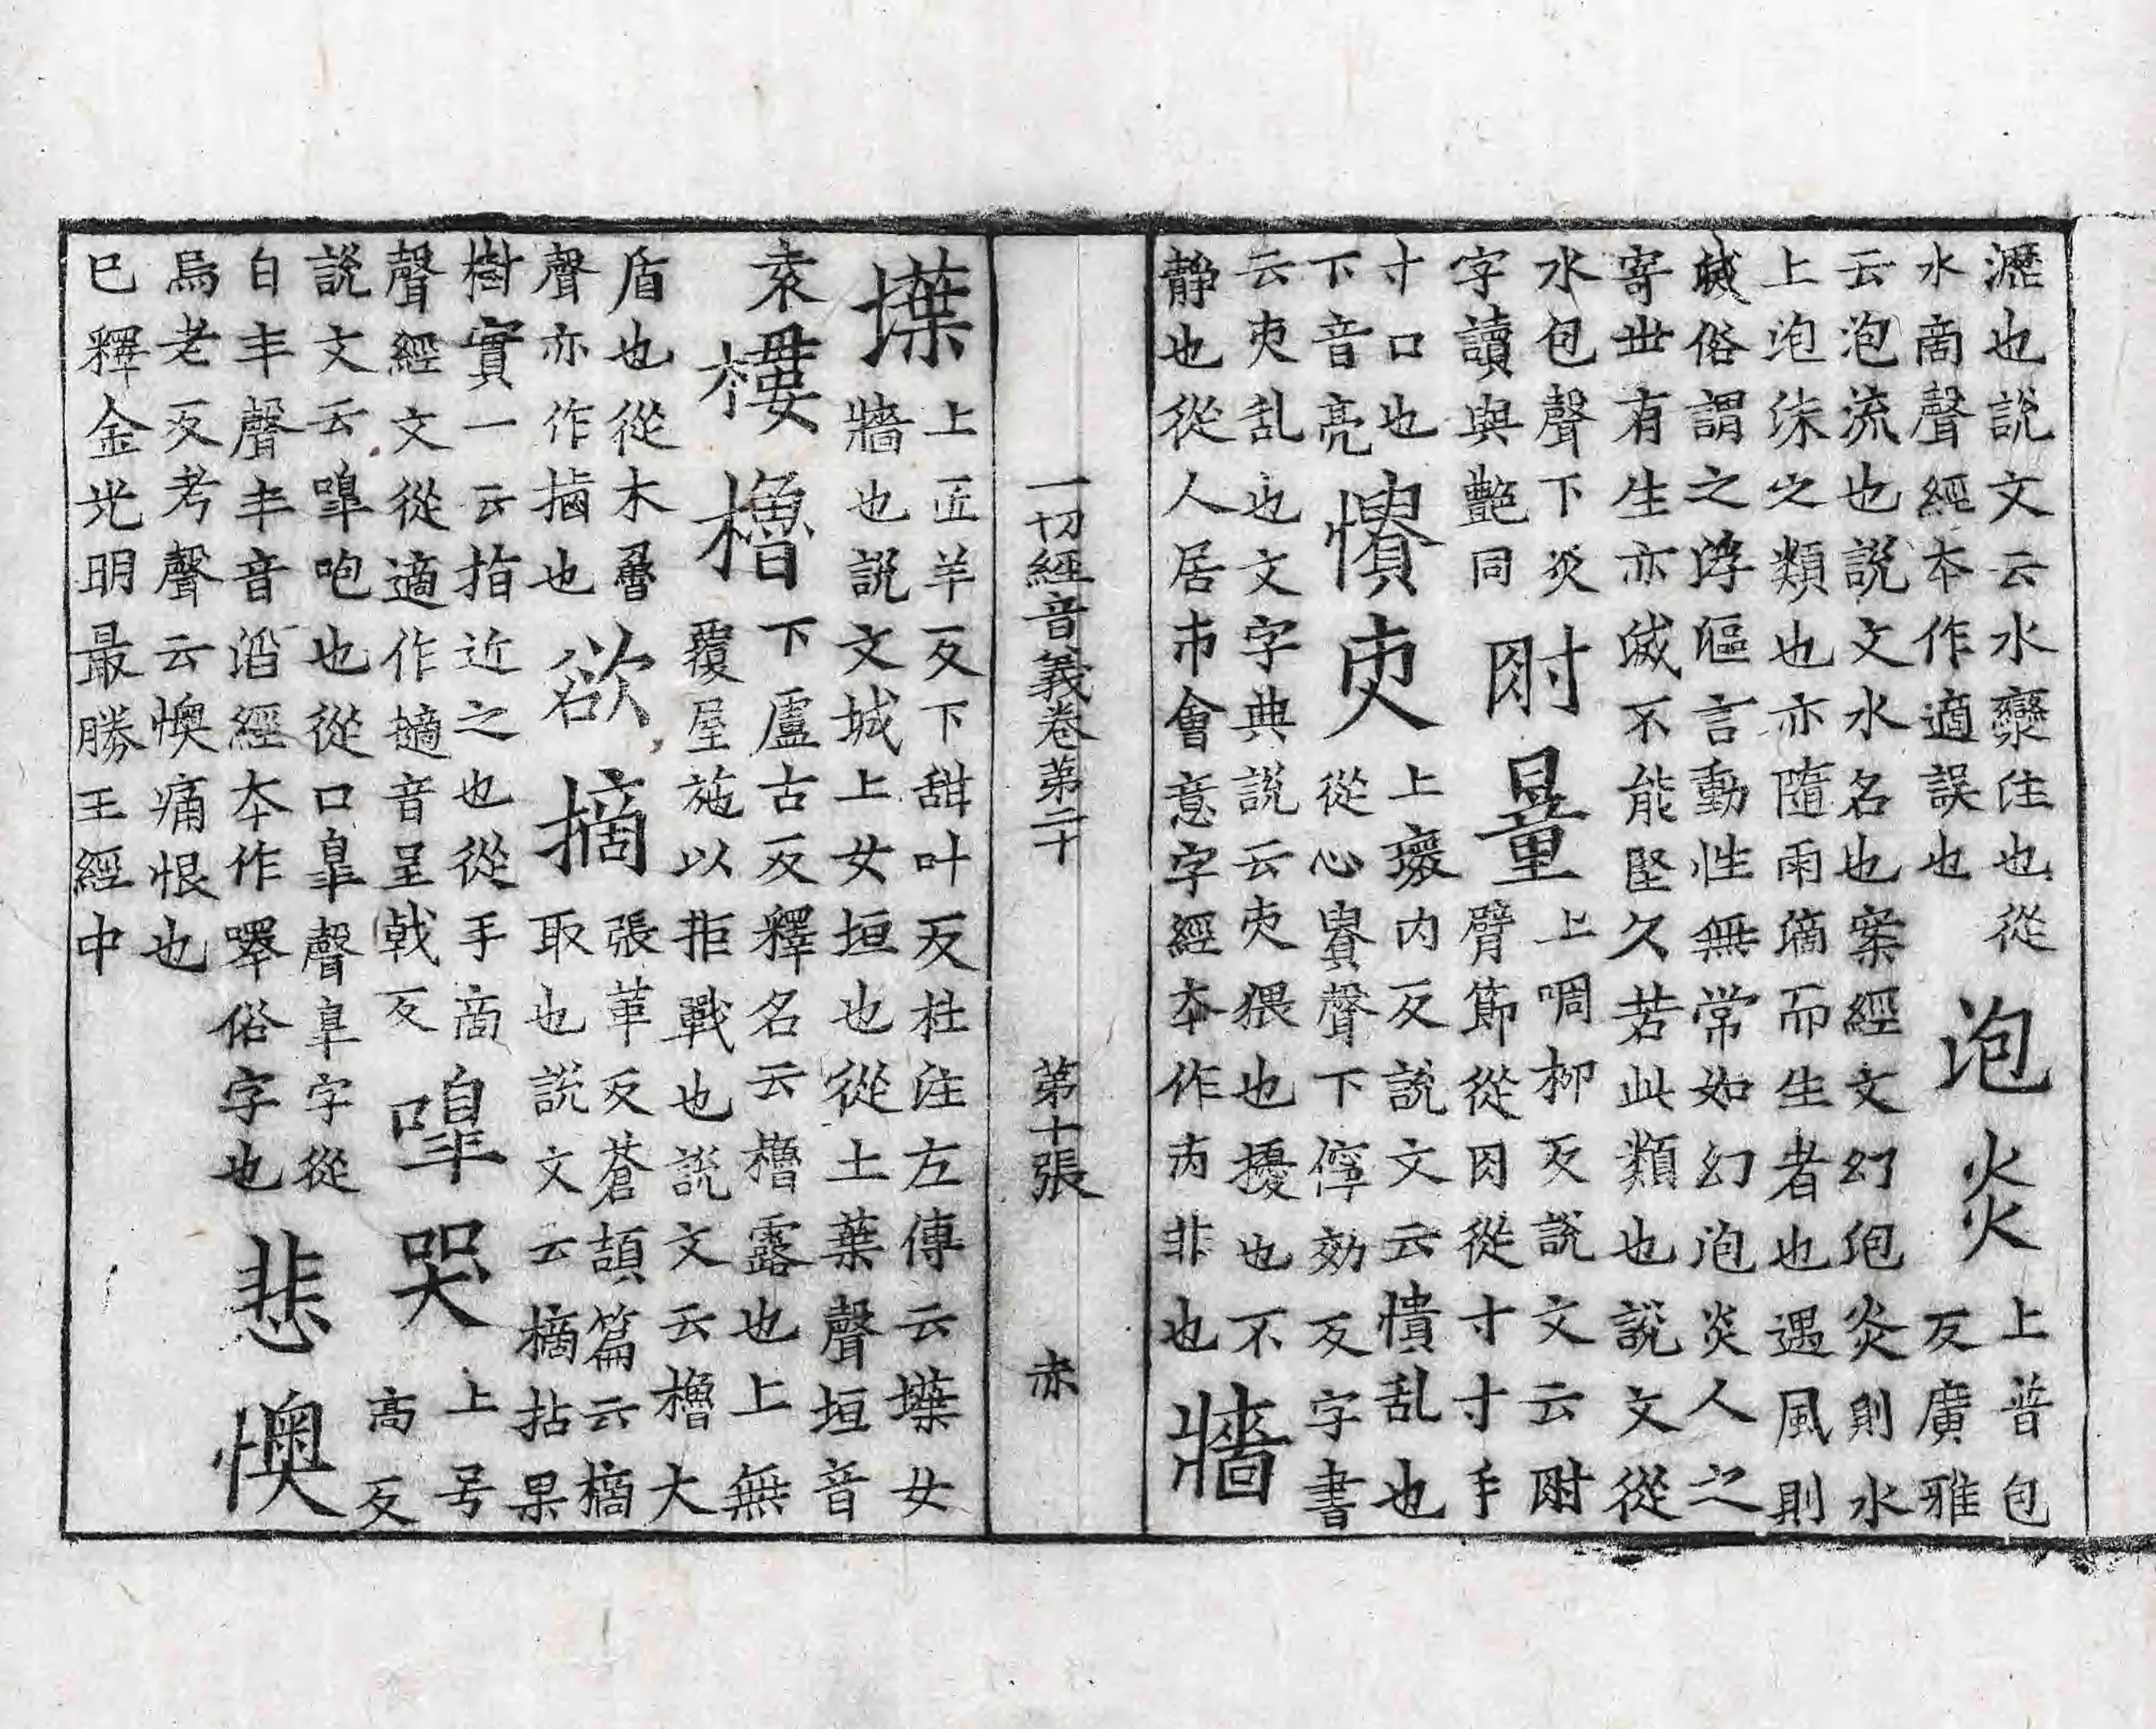 瀝也說文云水㶕注也從
水啇聲經本作適誤也
泡炎
上普包
反廣雅
云泡流也說文水名也案經文幻炰炎則水
上泡沫之類也亦隨雨滴而生者也遇風則
滅俗謂之浮漚言動性無常如幻泡炎人之
寄世有生亦滅不能堅久若此類也說文從
水包聲下炎
字讀與艷同
肘量
上啁柳反說文云肘
臂節從肉從寸寸手
寸口也
下音亮
憒吏
上瓌內反說文云憒乱也
從心貴聲下儜効反字書
云吏乱也文字典說云吏猥也擾也不
靜也從人居市會意字經本作丙非也
牆
一切經音義卷第二十 第十張 赤
堞
上匠羊反下甜叶反杜注左傳云堞女
牆也說文城上女垣也從土葉聲垣音
袁
樓櫓
下盧古反釋名云櫓露也上無
覆屋施以拒戰也說文云櫓大
盾也從木魯
聲亦作㯭也
欲摘
張革反蒼頡篇云摘
取也說文云摘拈果
樹實一云指近之也從手啇
聲經文從適作擿音呈戟反
嘷哭
上号
高反
說文云嘷咆也從口臯聲臯字從
白夲聲夲音滔經本作㗱俗字也
悲懊
烏老反考聲云懊痛恨也
已釋金光明最勝王經中